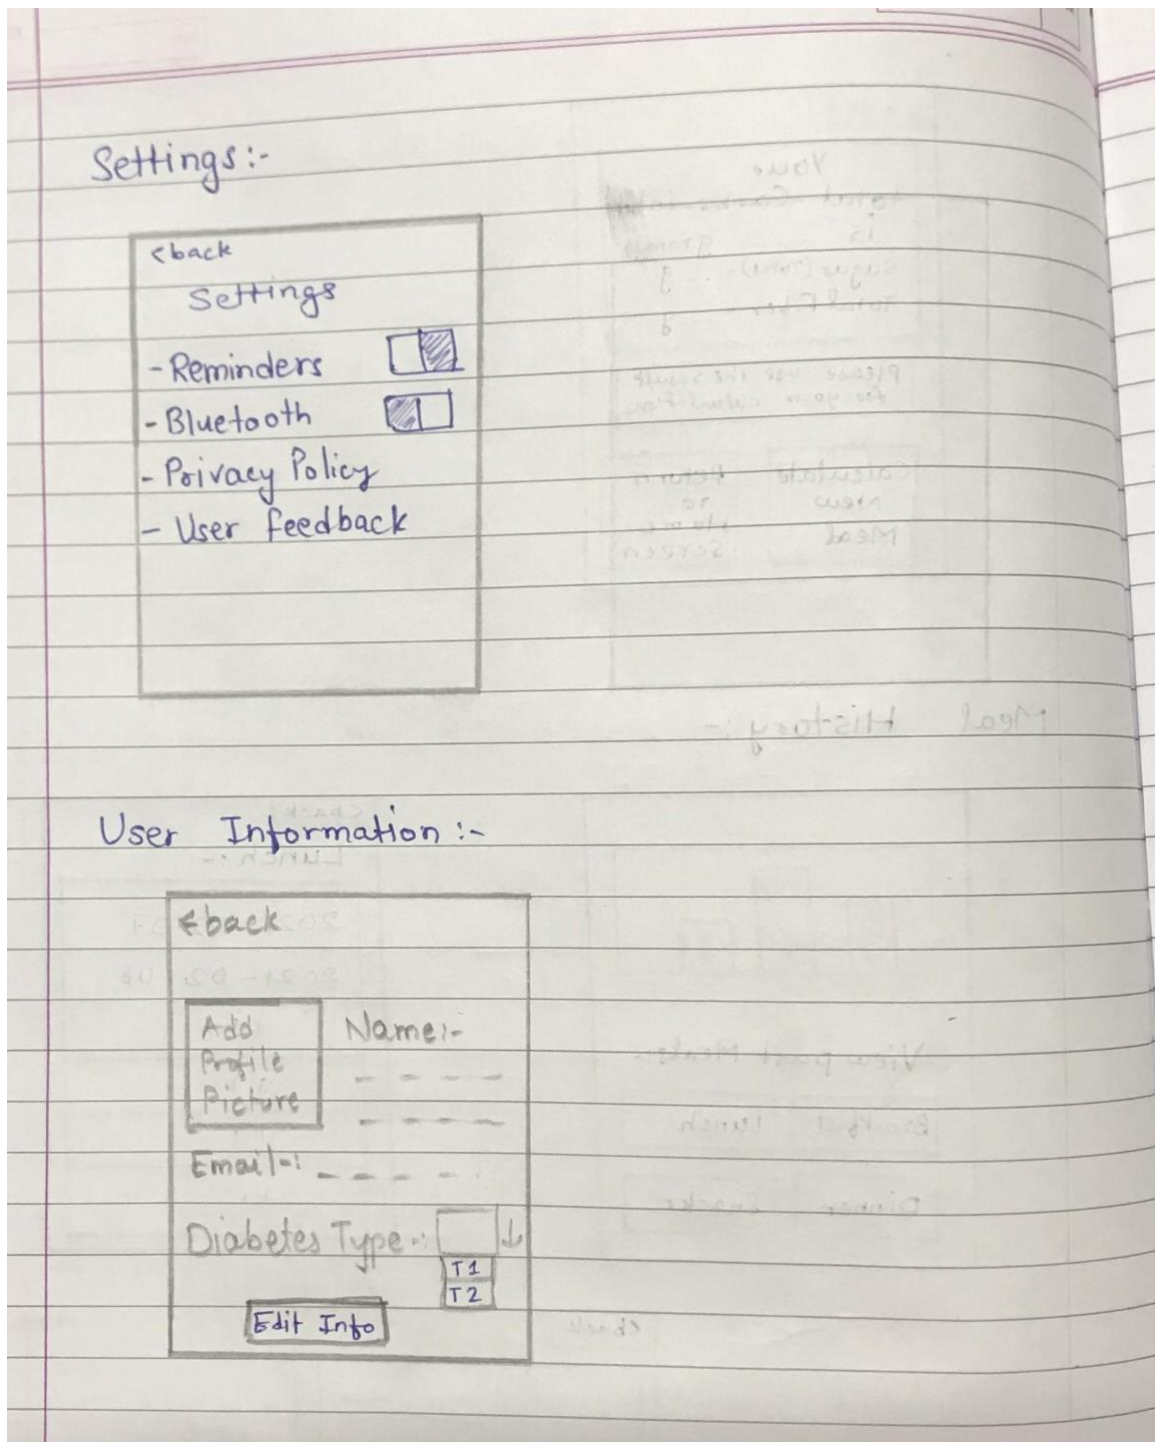 Settings:-
<back
Settings
- Reminders
- Bluetooth
- Privacy Policy
- User feedback
User Information :-
<back
Add
Profile
Picture
Name:-
Email-:
Diabetes Type-:
T1
T2
Edit Info